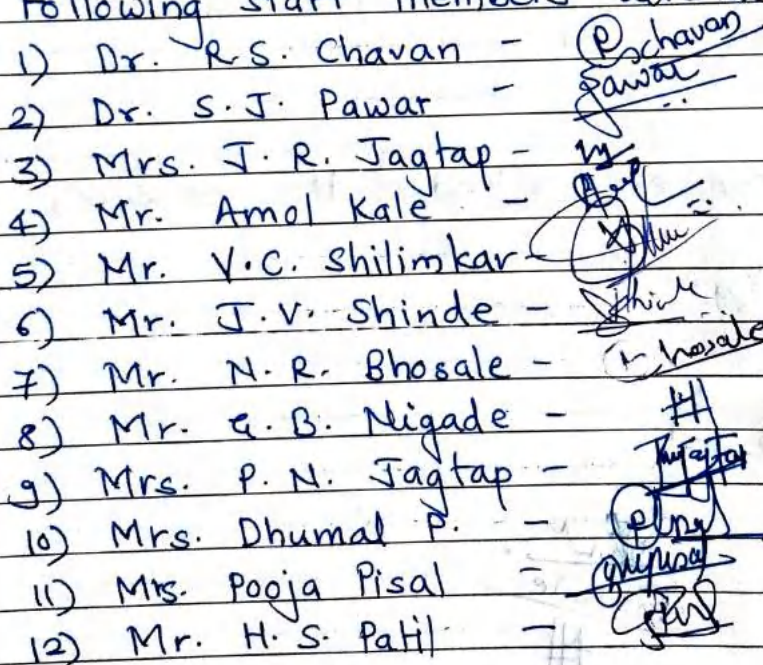 Following staff members
1) Dr. R.S. Chavan - Rschavan
2) Dr. S.J. Pawar - Pawar
3) Mrs. J.R. Jagtap -
4) Mr. Amol Kale -
5) Mr. V.C. Shilimkar -
6) Mr. J.V. Shinde -
7) Mr. N.R. Bhosale - Bhosale
8) Mr. G.B. Nigade -
9) Mrs. P.N. Jagtap -
10) Mrs. Dhumal P. -
11) Mrs. Pooja Pisal -
12) Mr. H.S. Patil -